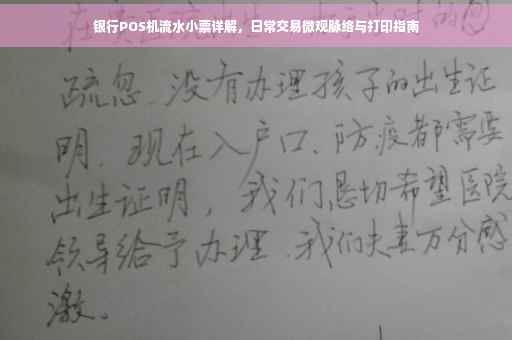 银行POS机流水小票详解，日常交易微观脉络与打印指南
疏忽、没有办理孩子的出生证
明、现在入户口、防疫都需要
出生证明，我们恳切希望医院
领导给予办理、我们夫妻万分感
激。